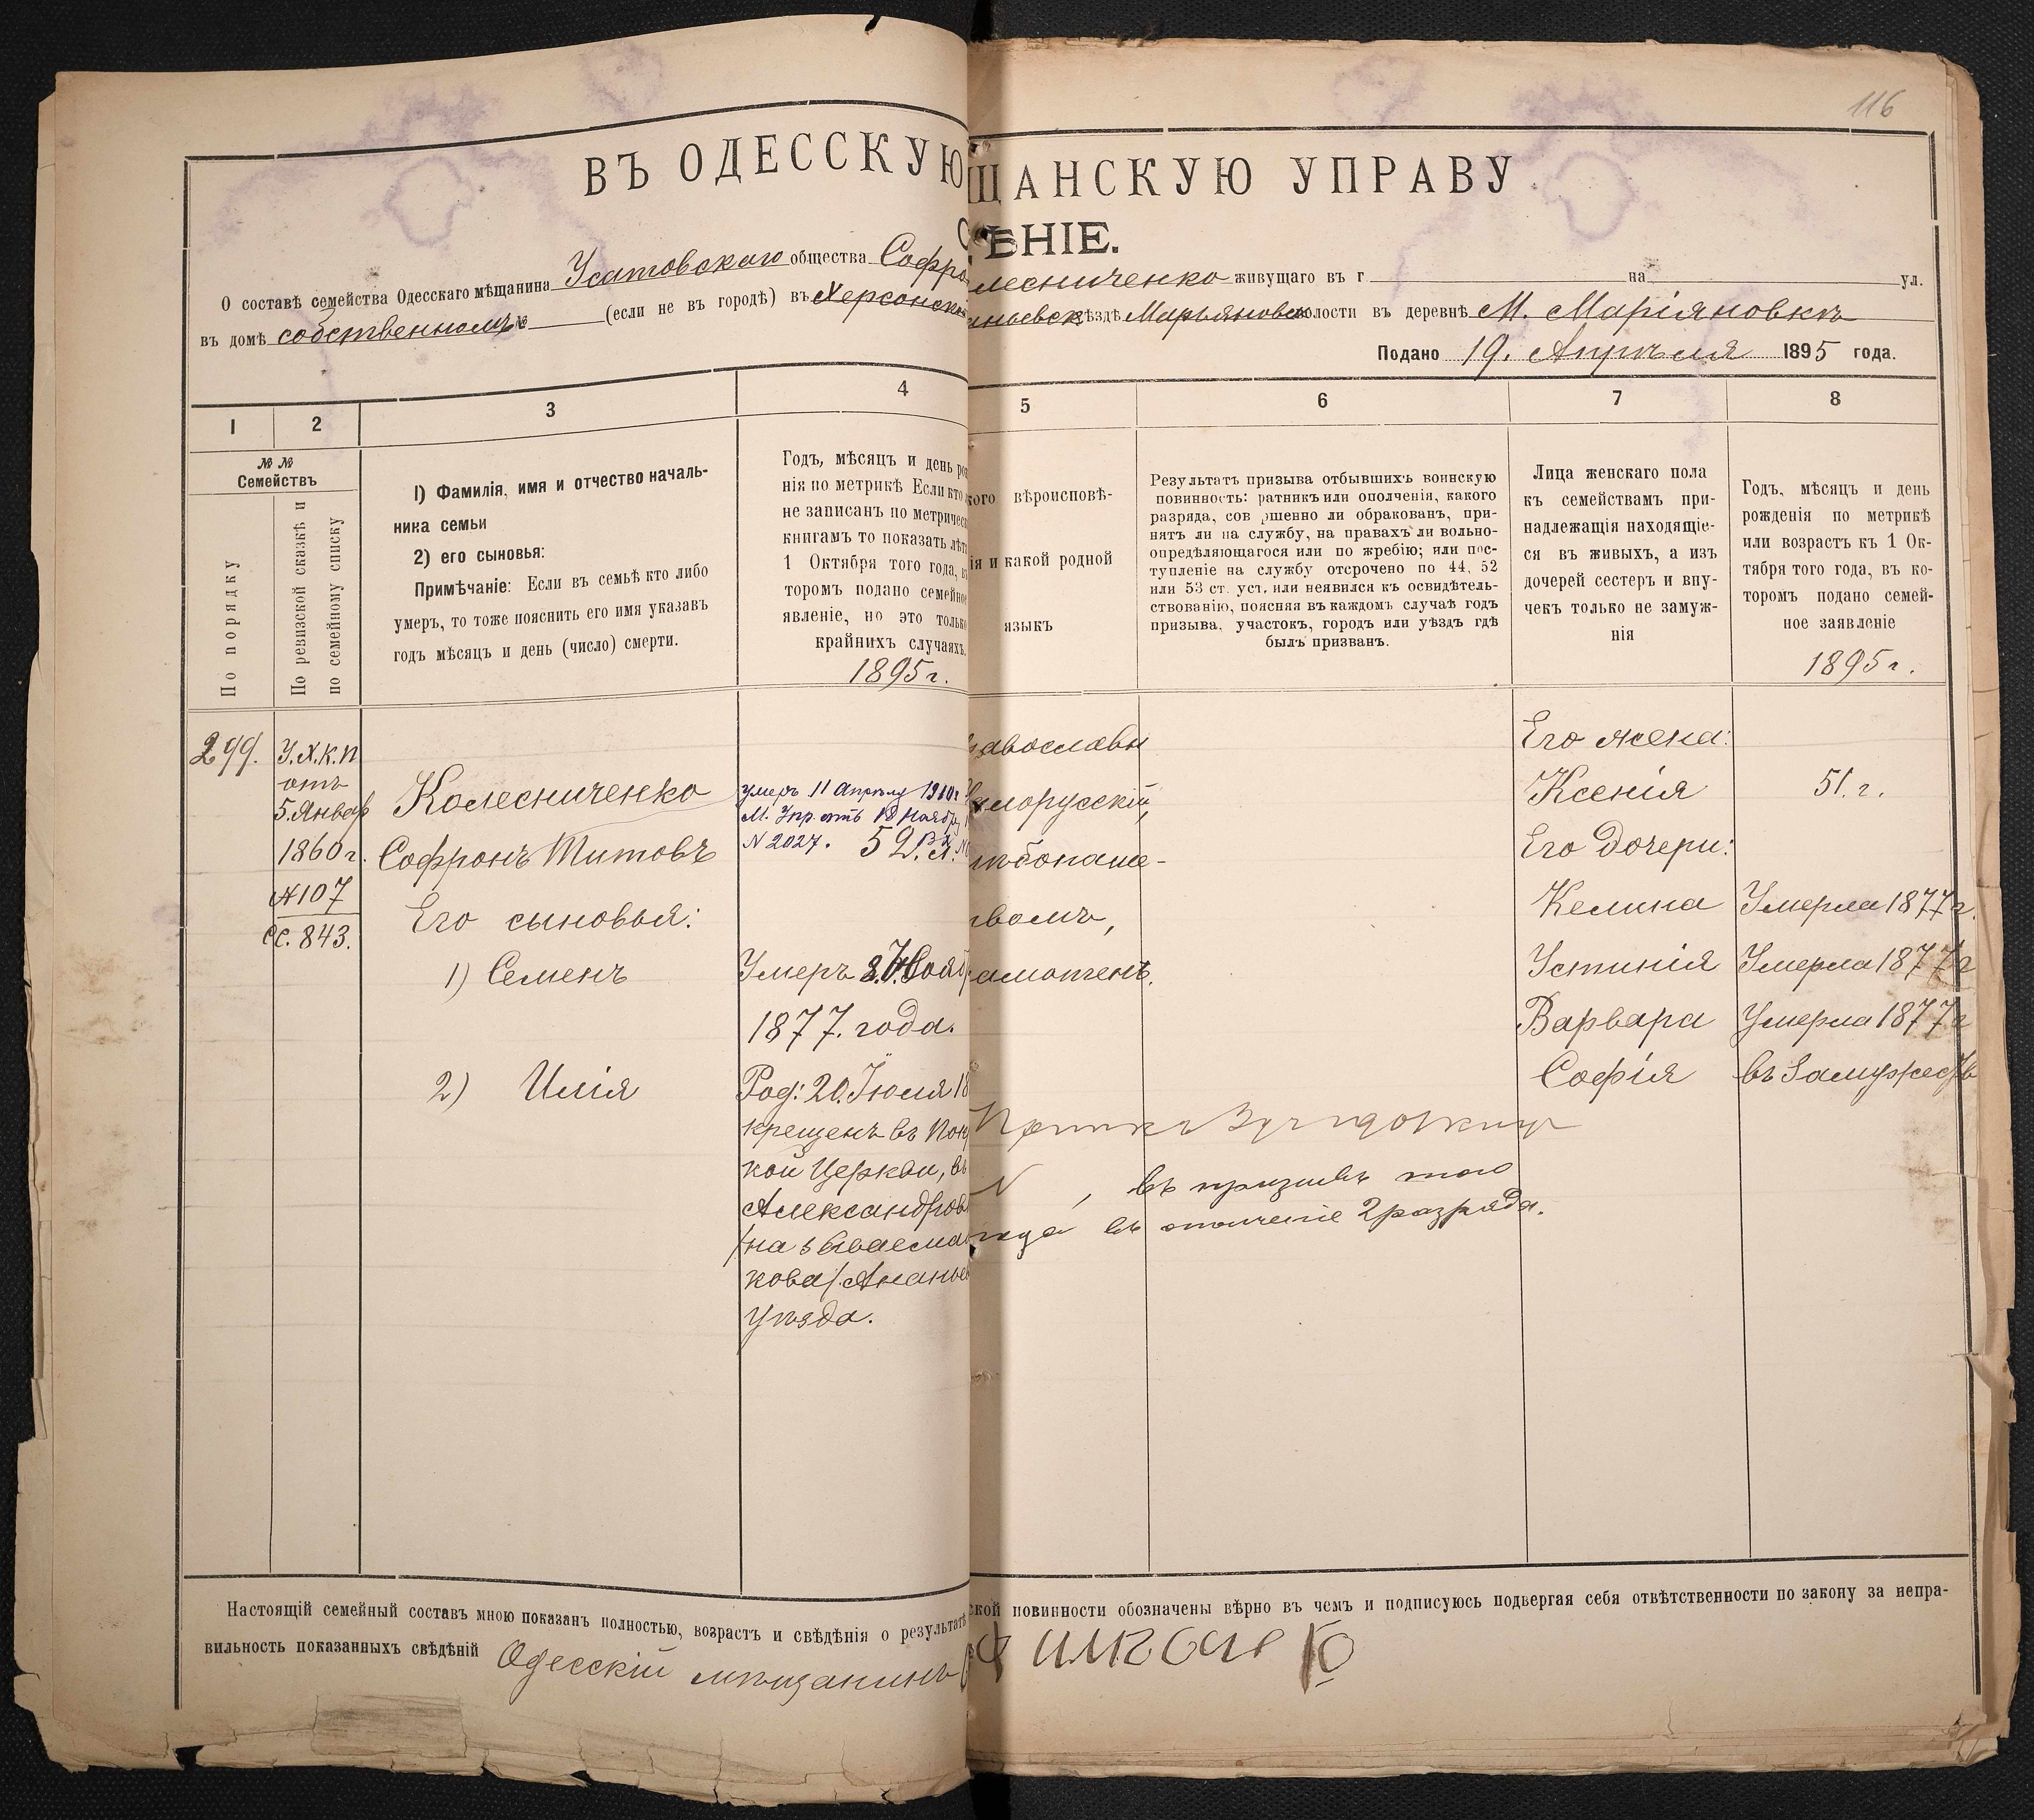 116
ВЪ ОДЕССКУЮ ЩАНСКУЮ УПРАВУ
ѢНІЕ.
О составѣ семейства Одесскаго мѣщанина Усатовскаго общества Софро лесниченко живущаго въ г на ул.
въ домѣ собственномъ № (если не въ городѣ) въ Херсонск аньевск ѣздѣ Марьяновск олости въ деревнѣ М. Маріяновкѣ
Подано 19. Апрѣля 1895 года.
1 2 3 4 5 6 7 8
№ № Семействъ
По порядку
По ревизской сказкѣ и
по семейному списку
1) Фамилія, имя и отчество началь-
ника семьи
2) его сыновья:
Примѣчаніе: Если въ семьѣ кто либо
умеръ, то тоже пояснить его имя указавъ
годъ мѣсяцъ и день (число) смерти.
Годъ, мѣсяцъ и день ро
нія по метрикѣ Если кто
не записанъ по метричес
книгамъ то показать лѣт
1 Октября того года, к
торомъ подано семейно
явленіе, но это только
крайнихъ случаяхъ.
1895 г.
кого вѣроисповѣ-
ія и какой родной
языкъ
Результатъ призыва отбывшихъ воинскую
повинность: ратникъ или ополченія, какого
разряда, сов ршенно ли обракованъ, при-
нятъ ли на службу, на правахъ ли вольно-
опредѣляющагося или по жребію; или пос-
тупленіе на службу отсрочено по 44, 52
или 53 ст. уст. или неявился къ освидѣтель-
ствованію, поясняя въ каждомъ случаѣ годъ
призыва, участокъ, городъ или уѣздъ гдѣ
былъ призванъ.
Лица женскаго пола
къ семействамъ при-
надлежащія находящіе-
ся въ живыхъ, а изъ
дочерей сестеръ и вну-
чекъ только не замуж-
нія
Годъ, мѣсяцъ и день
рожденія по метрикѣ
или возрастъ къ 1 Ок-
тября того года, въ ко-
торомъ подано семей-
ное заявленіе
1895 г.
299.
У.Х.К.П
отъ
5. Январ
1860 г.
№ 107
СС. 843.
Колесниченко
Софронъ Титовъ
Его сыновья:
1) Семенъ
2) Илія
умеръ 11 Апрѣля 1910 г
М. Упр. отъ 18 Ноябр
N 2027. 52.
Умеръ 8. Нояб
1877. года.
Род: 20. Іюля 18
крещенъ въ Пок
кой Церкви, въ
Александров
/называема
кова/ Ананьев
Уѣзда.
авославн
алорусскій,
ѣбопаше-
твомъ,
амотенъ.
, въ призывѣ того
года въ ополченіе 2 разряда.
Его жена:
Ксенія 51. г.
Его Дочери:
Келина Умерла 1877 г.
Устинія Умерла 1877 г
Варвара Умерла 1877 г
София въ Замужеств
Настоящій семейный составъ мною показанъ полностью, возрастъ и свѣдѣнія о результатѣ ской повинности обозначены вѣрно въ чемъ и подписуюсь подвергая себя отвѣтственности по закону за непра-
вильность показанныхъ свѣдѣній Одесскій мѣщанинъ